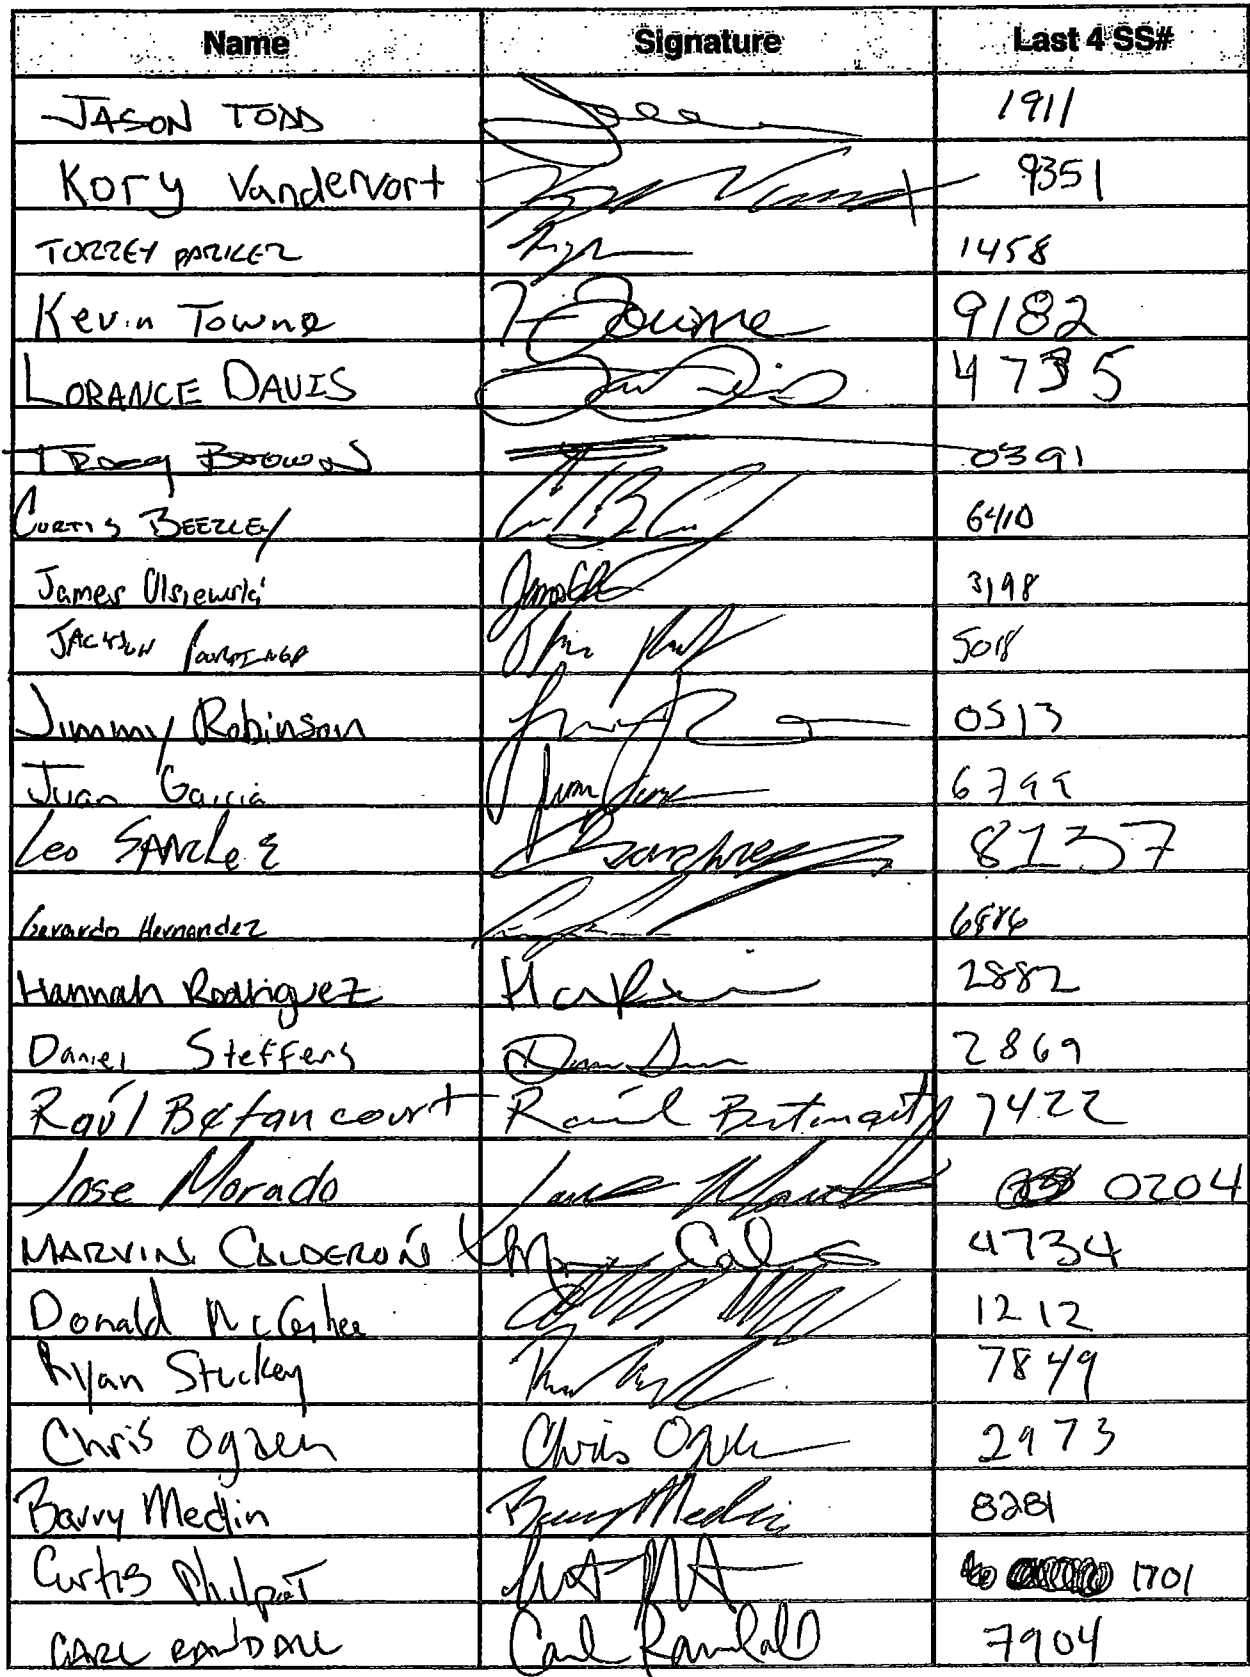 Name Signature Last 4 SS#
JASON TODD 1911
Kory Vandervort 9351
TORREY PARKER 1458
Kevin Towne K Towne 9182
LORANCE DAVIS 4735
Brown 0391
CURTIS BEEZLEY 6410
James Olsiewski 3198
JACKSON
Jimmy Robinson 0513
Juan Garcia 6799
Leo SANcheZ 8137
Gerardo Hernandez
Hannah Rodriguez 2882
Daniel Steffens 2869
Raúl Betancourt Raúl Betancourt 7422
Jose Morado 0204
MARVIN CALDERON 4734
Donald 1212
Ryan Stuckey 7849
Chris Ogden Chris Ogden 2973
Barry Medlin Barry Medlin 8281
Curtis Philpot 1701
CARL RANDALL Carl Randall 7904